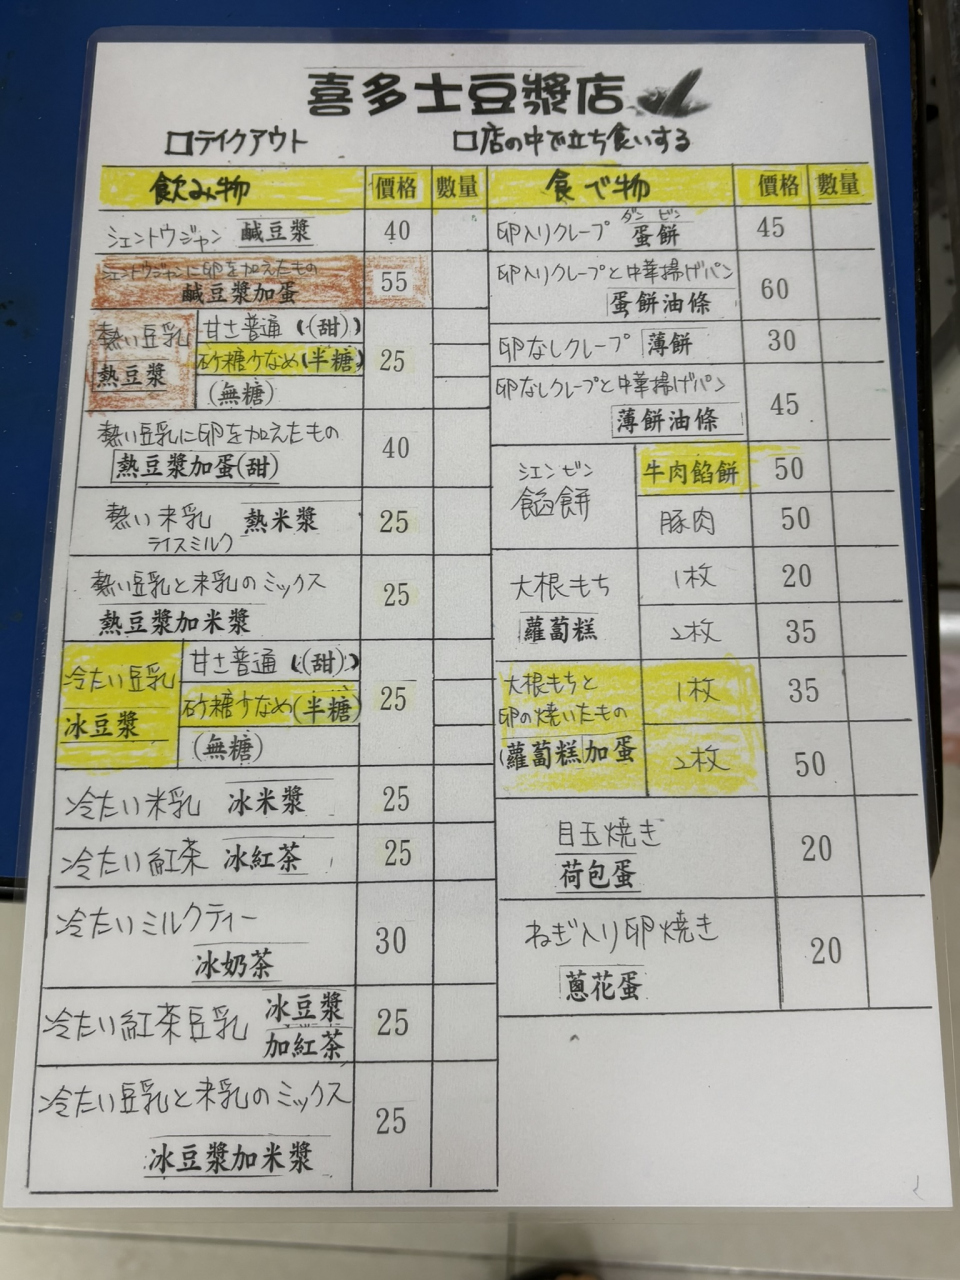 喜多士豆漿店
□テイクアウト
□店の中で立ち食いする
飲み物 價格 數量
シェントウジャン 鹹豆漿 40
シェントウジャンに卵を加えたもの
鹹豆漿加蛋 55
熱い豆乳
熱豆漿
甘さ普通 (甜)
砂糖少なめ(半糖) 25
(無糖)
熱い豆乳に卵を加えたもの
熱豆漿加蛋(甜) 40
熱い米乳 熱米漿 25
ライスミルク
熱い豆乳と米乳のミックス
熱豆漿加米漿 25
冷たい豆乳
冰豆漿
甘さ普通 (甜)
砂糖少なめ(半糖) 25
(無糖)
冷たい米乳 冰米漿 25
冷たい紅茶 冰紅茶 25
冷たいミルクティー
冰奶茶 30
冷たい紅茶豆乳 冰豆漿
加紅茶 25
冷たい豆乳と米乳のミックス
冰豆漿加米漿 25
食で物 價格 數量
ダン ビン
卵入りクレープ 蛋餅 45
卵入りクレープと中華揚げパン
蛋餅油條 60
卵なしクレープ 薄餅 30
卵なしクレープと中華揚げパン
薄餅油條 45
シェン ビン
餡餅
牛肉餡餅 50
豚肉 50
大根もち
蘿蔔糕
1枚 20
2枚 35
大根もちと
卵の焼いたもの
(蘿蔔糕加蛋
1枚 35
2枚 50
目玉焼き
荷包蛋 20
ねぎ入り卵焼き
蔥花蛋 20